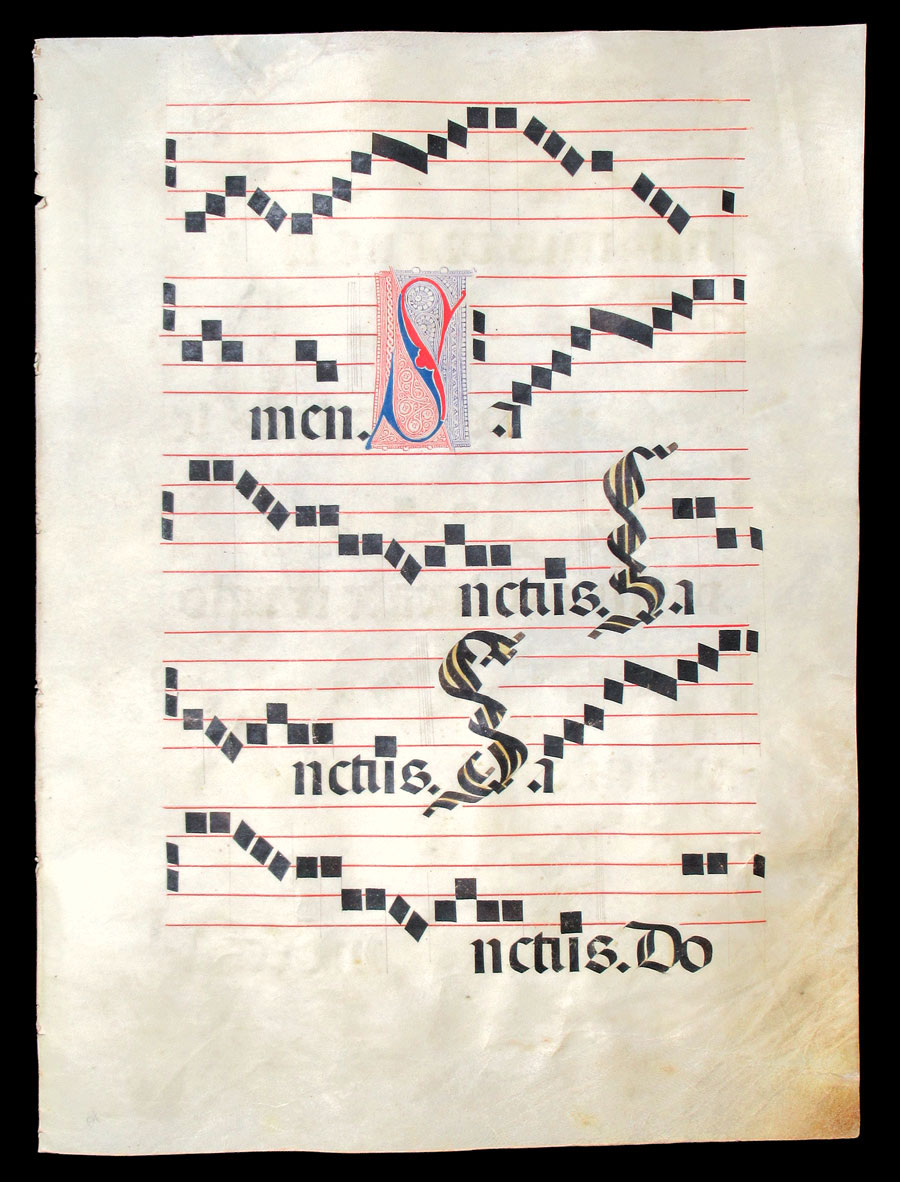 men. Sa
nctus. Sa
nctus. Sa
nctus. Do